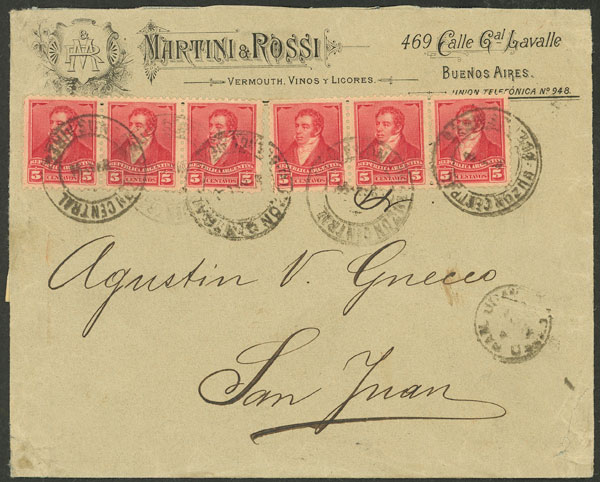 MR
MARTINI & ROSSI
VERMOUTH, VINOS Y LICORES.
469 Calle Gal Lavalle
BUENOS AIRES.
UNION TELEFÓNICA Nº 948.
REPUBLICA ARGENTINA
5 CENTAVOS 5
REPUBLICA ARGENTINA
5 CENTAVOS 5
REPUBLICA ARGENTINA
5 CENTAVOS 5
REPUBLICA ARGENTINA
5 CENTAVOS 5
REPUBLICA ARGENTINA
5 CENTAVOS 5
REPUBLICA ARGENTINA
5 CENTAVOS 5
BUZON CENTRAL
Agustin V. Gnecco
San Juan